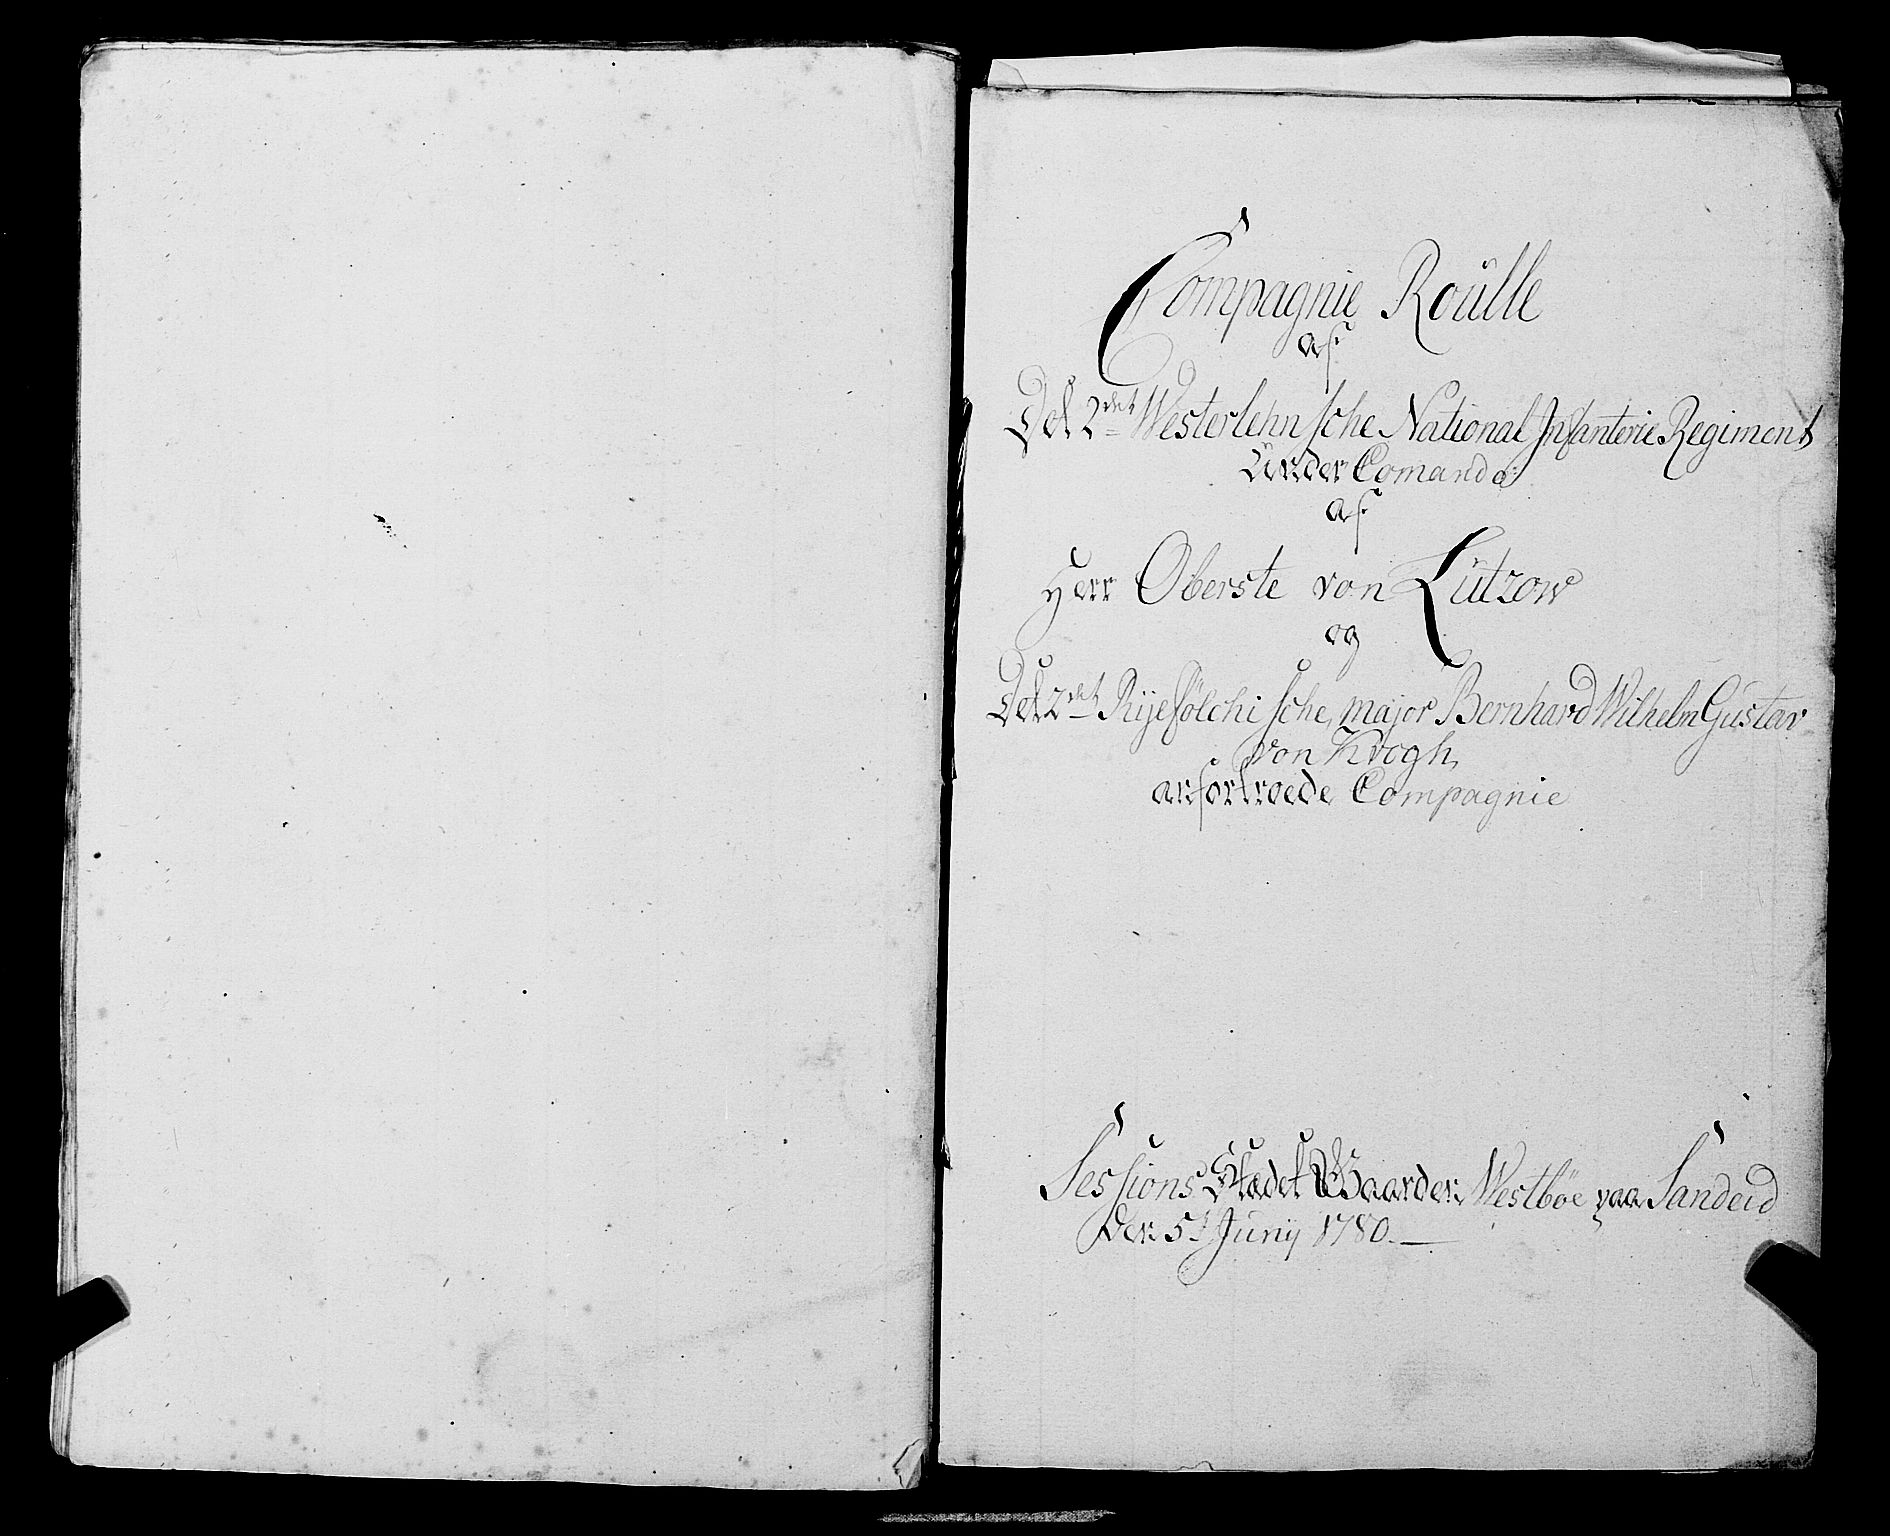 Compagnie Roülle
af
Det 2det Westerlehnsche National Infanterie Regiment
Under Comando
af
Herr Oberste von Lützow
og
Det 2det Rijefölchische, major Bernhard Wilhelm Gustav
von Krogh,
anfortroede Compagnie
Sessions Stædet Gaarden Westböe paa Sandeid
Den 5t Junij 1780.